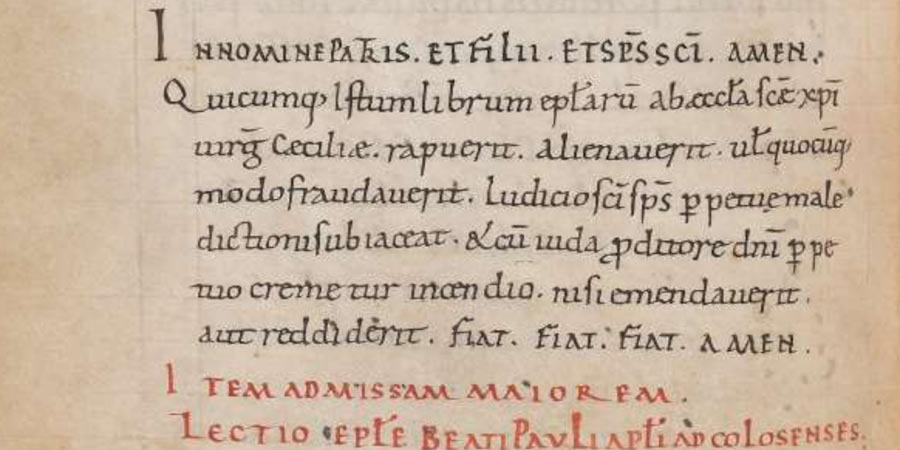 IN NOMINE PATRIS. ET FĪLII. ET SP̄S SCĪ. AMEN.
Quicumq; Istum librum epłarū ab æccła scǣ xp̄i
uirḡ Ceciliæ. rapuerit. alienauerit. uł quocūq;
modo fraudauerit. Iudicio scī sp̄s ꝑpetuę male
dictioni subiaceat. & cū iuda ꝓditore dnī ꝑpe
tuo cremetur incendio. nisi emendauerit.
aut reddiderit. FIAT. FIAT. FIAT. AMEN.
ITEM AD MISSAM MAIOREM.
LECTIO EPŁE BEATI PAULI APŁI AD COLOSENSES.